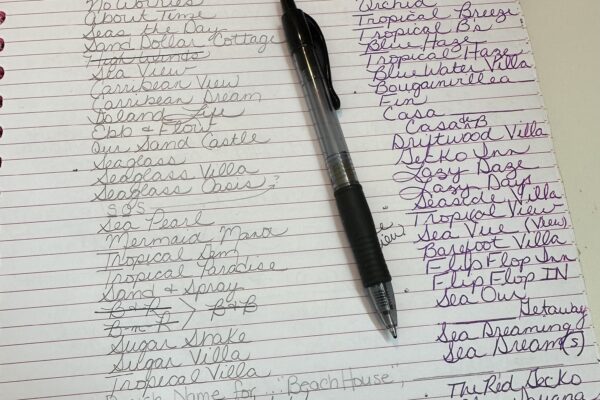 No Worries
About Time
Seas the Day
Sand Dollar Cottage
High Winds
Sea View
Carribean View
Carribean Dream
Island Life
Ebb & Flow
Our Sand Castle
Seaglass
Seaglass Villa
Seaglass Oasis?
SOS
Sea Pearl
Mermaid Manor
Tropical Gem
Tropical Paradise
Sand & Spray
B & R > B & B
B-n-R
Sugar Shake
Sugar Villa
Tropical Villa
Name for "BeachHouse"
Orchid
Tropical Breeze
Tropical B's
Blue Haze
Tropical Haze
BlueWater Villa
Bougainvillea
Fin
Casa
Casa B
Driftwood Villa
Gecko Inn
Lazy Daze
Lazy Days
Seaside Villa
Tropical View
Sea Vue (View)
Barefoot Villa
Flip Flop Inn
Flip Flop IN
Sea Our
Getaway
Sea Dreaming
Sea Dream(s)
The Red Gecko